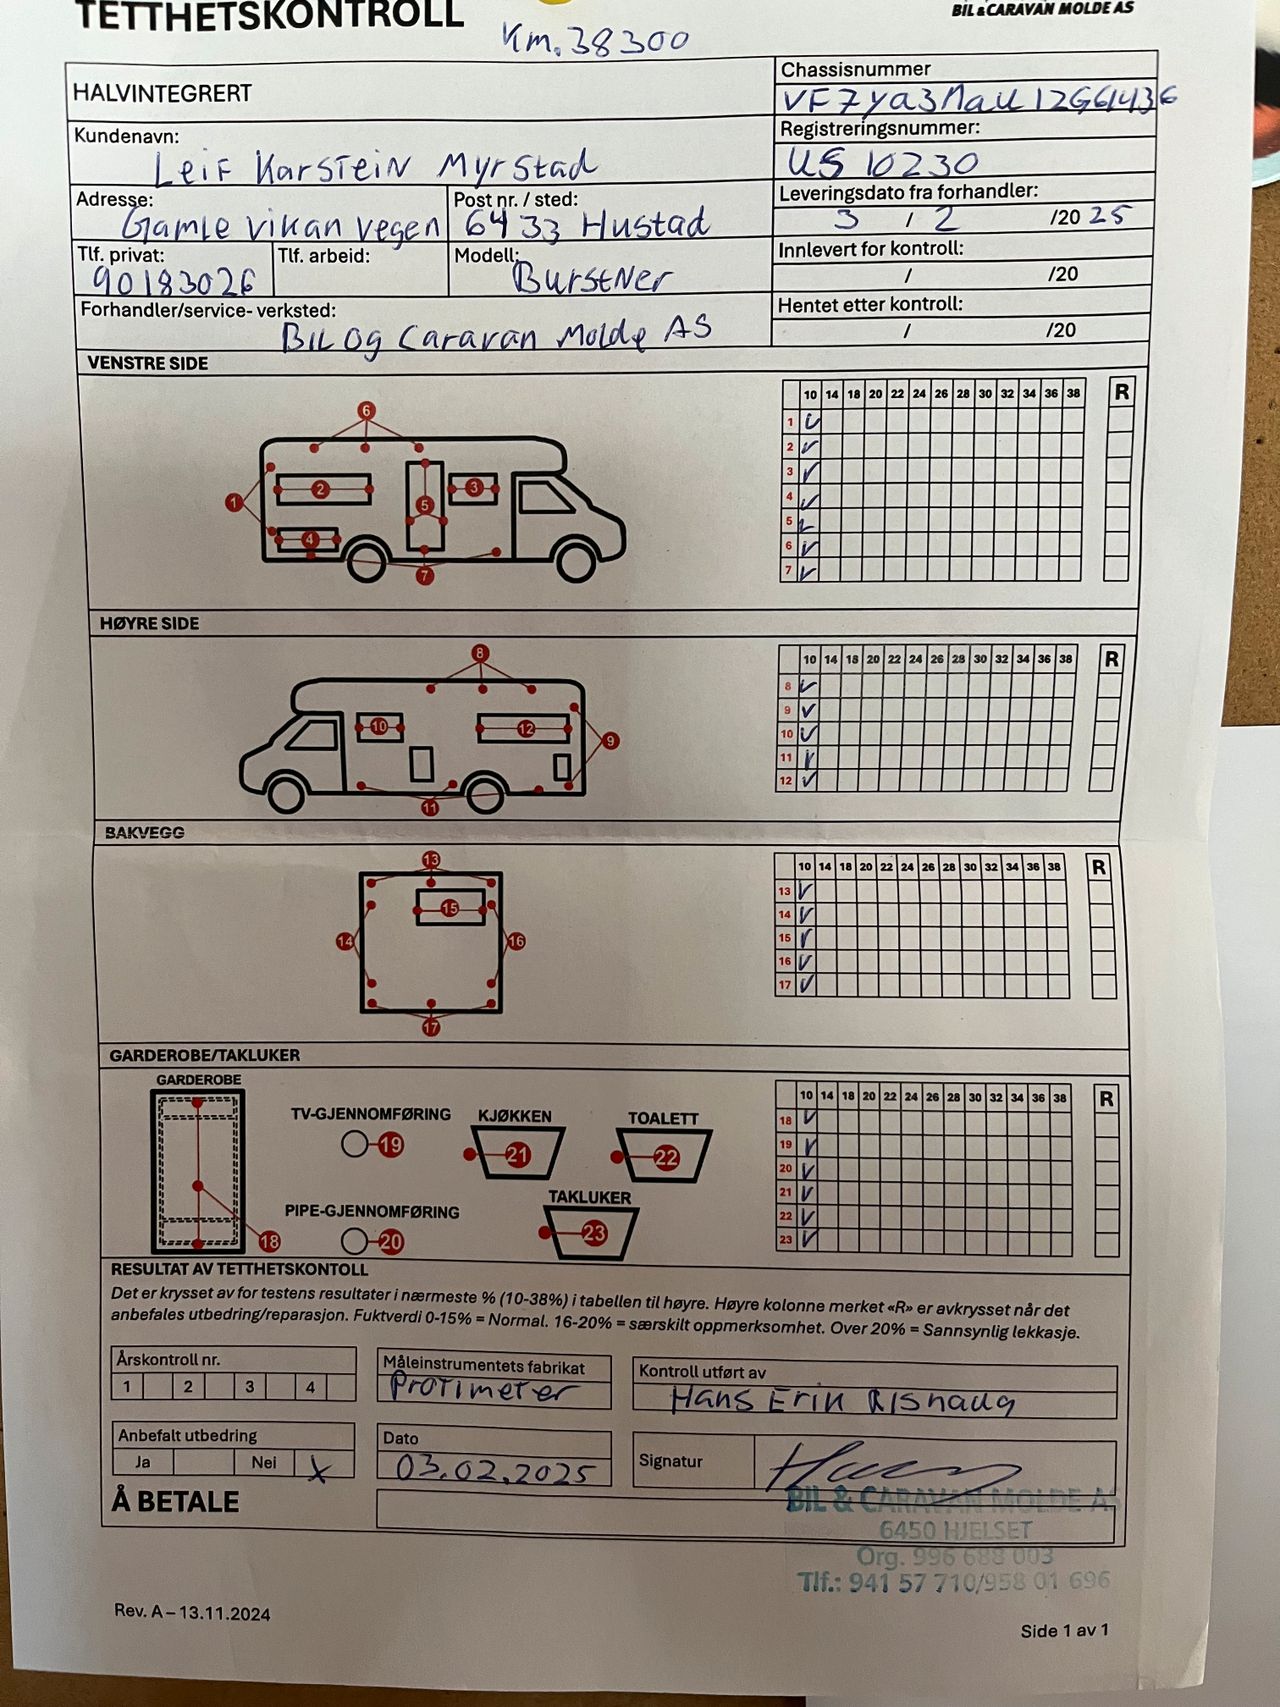 TETTHETSKONTROLL
BIL & CARAVAN MOLDE AS
Km. 38300
HALVINTEGRERT
Chassisnummer
Kundenavn:
Leif Karstein Myrstad
Registreringsnummer:
US 10230
Adresse:
Gamle vikan vegen
Post nr. / sted:
6433 Hustad
Leveringsdato fra forhandler:
3 / 2 /20 25
Tlf. privat:
90183026
Tlf. arbeid:
Modell:
Burstner
Innlevert for kontroll:
/ /20
Forhandler/service- verksted:
Bil og Caravan Molde AS
Hentet etter kontroll:
/ /20
VENSTRE SIDE
6
1
2
3
5
4
7
10 14 18 20 22 24 26 28 30 32 34 36 38 R
1
2
3
4
5
6
7
HØYRE SIDE
8
10
12
9
11
10 14 18 20 22 24 26 28 30 32 34 36 38 R
8
9
10
11
12
BAKVEGG
13
15
14
16
17
10 14 18 20 22 24 26 28 30 32 34 36 38 R
13
14
15
16
17
GARDEROBE/TAKLUKER
GARDEROBE
18
TV-GJENNOMFØRING
19
KJØKKEN
21
TOALETT
22
PIPE-GJENNOMFØRING
20
TAKLUKER
23
10 14 18 20 22 24 26 28 30 32 34 36 38 R
18
19
20
21
22
23
RESULTAT AV TETTHETSKONTOLL
Det er krysset av for testens resultater i nærmeste % (10-38%) i tabellen til høyre. Høyre kolonne merket «R» er avkrysset når det
anbefales utbedring/reparasjon. Fuktverdi 0-15% = Normal. 16-20% = særskilt oppmerksomhet. Over 20% = Sannsynlig lekkasje.
Årskontroll nr.
1 2 3 4
Måleinstrumentets fabrikat
Protimeter
Kontroll utført av
Hans Erik
Anbefalt utbedring
Ja Nei X
Dato
03.02.2025
Signatur
Å BETALE
BIL & CARAVAN MOLDE AS
6450 HJELSET
Org. 996 688 003
Tlf.: 941 57 710/958 01 696
Rev. A – 13.11.2024
Side 1 av 1